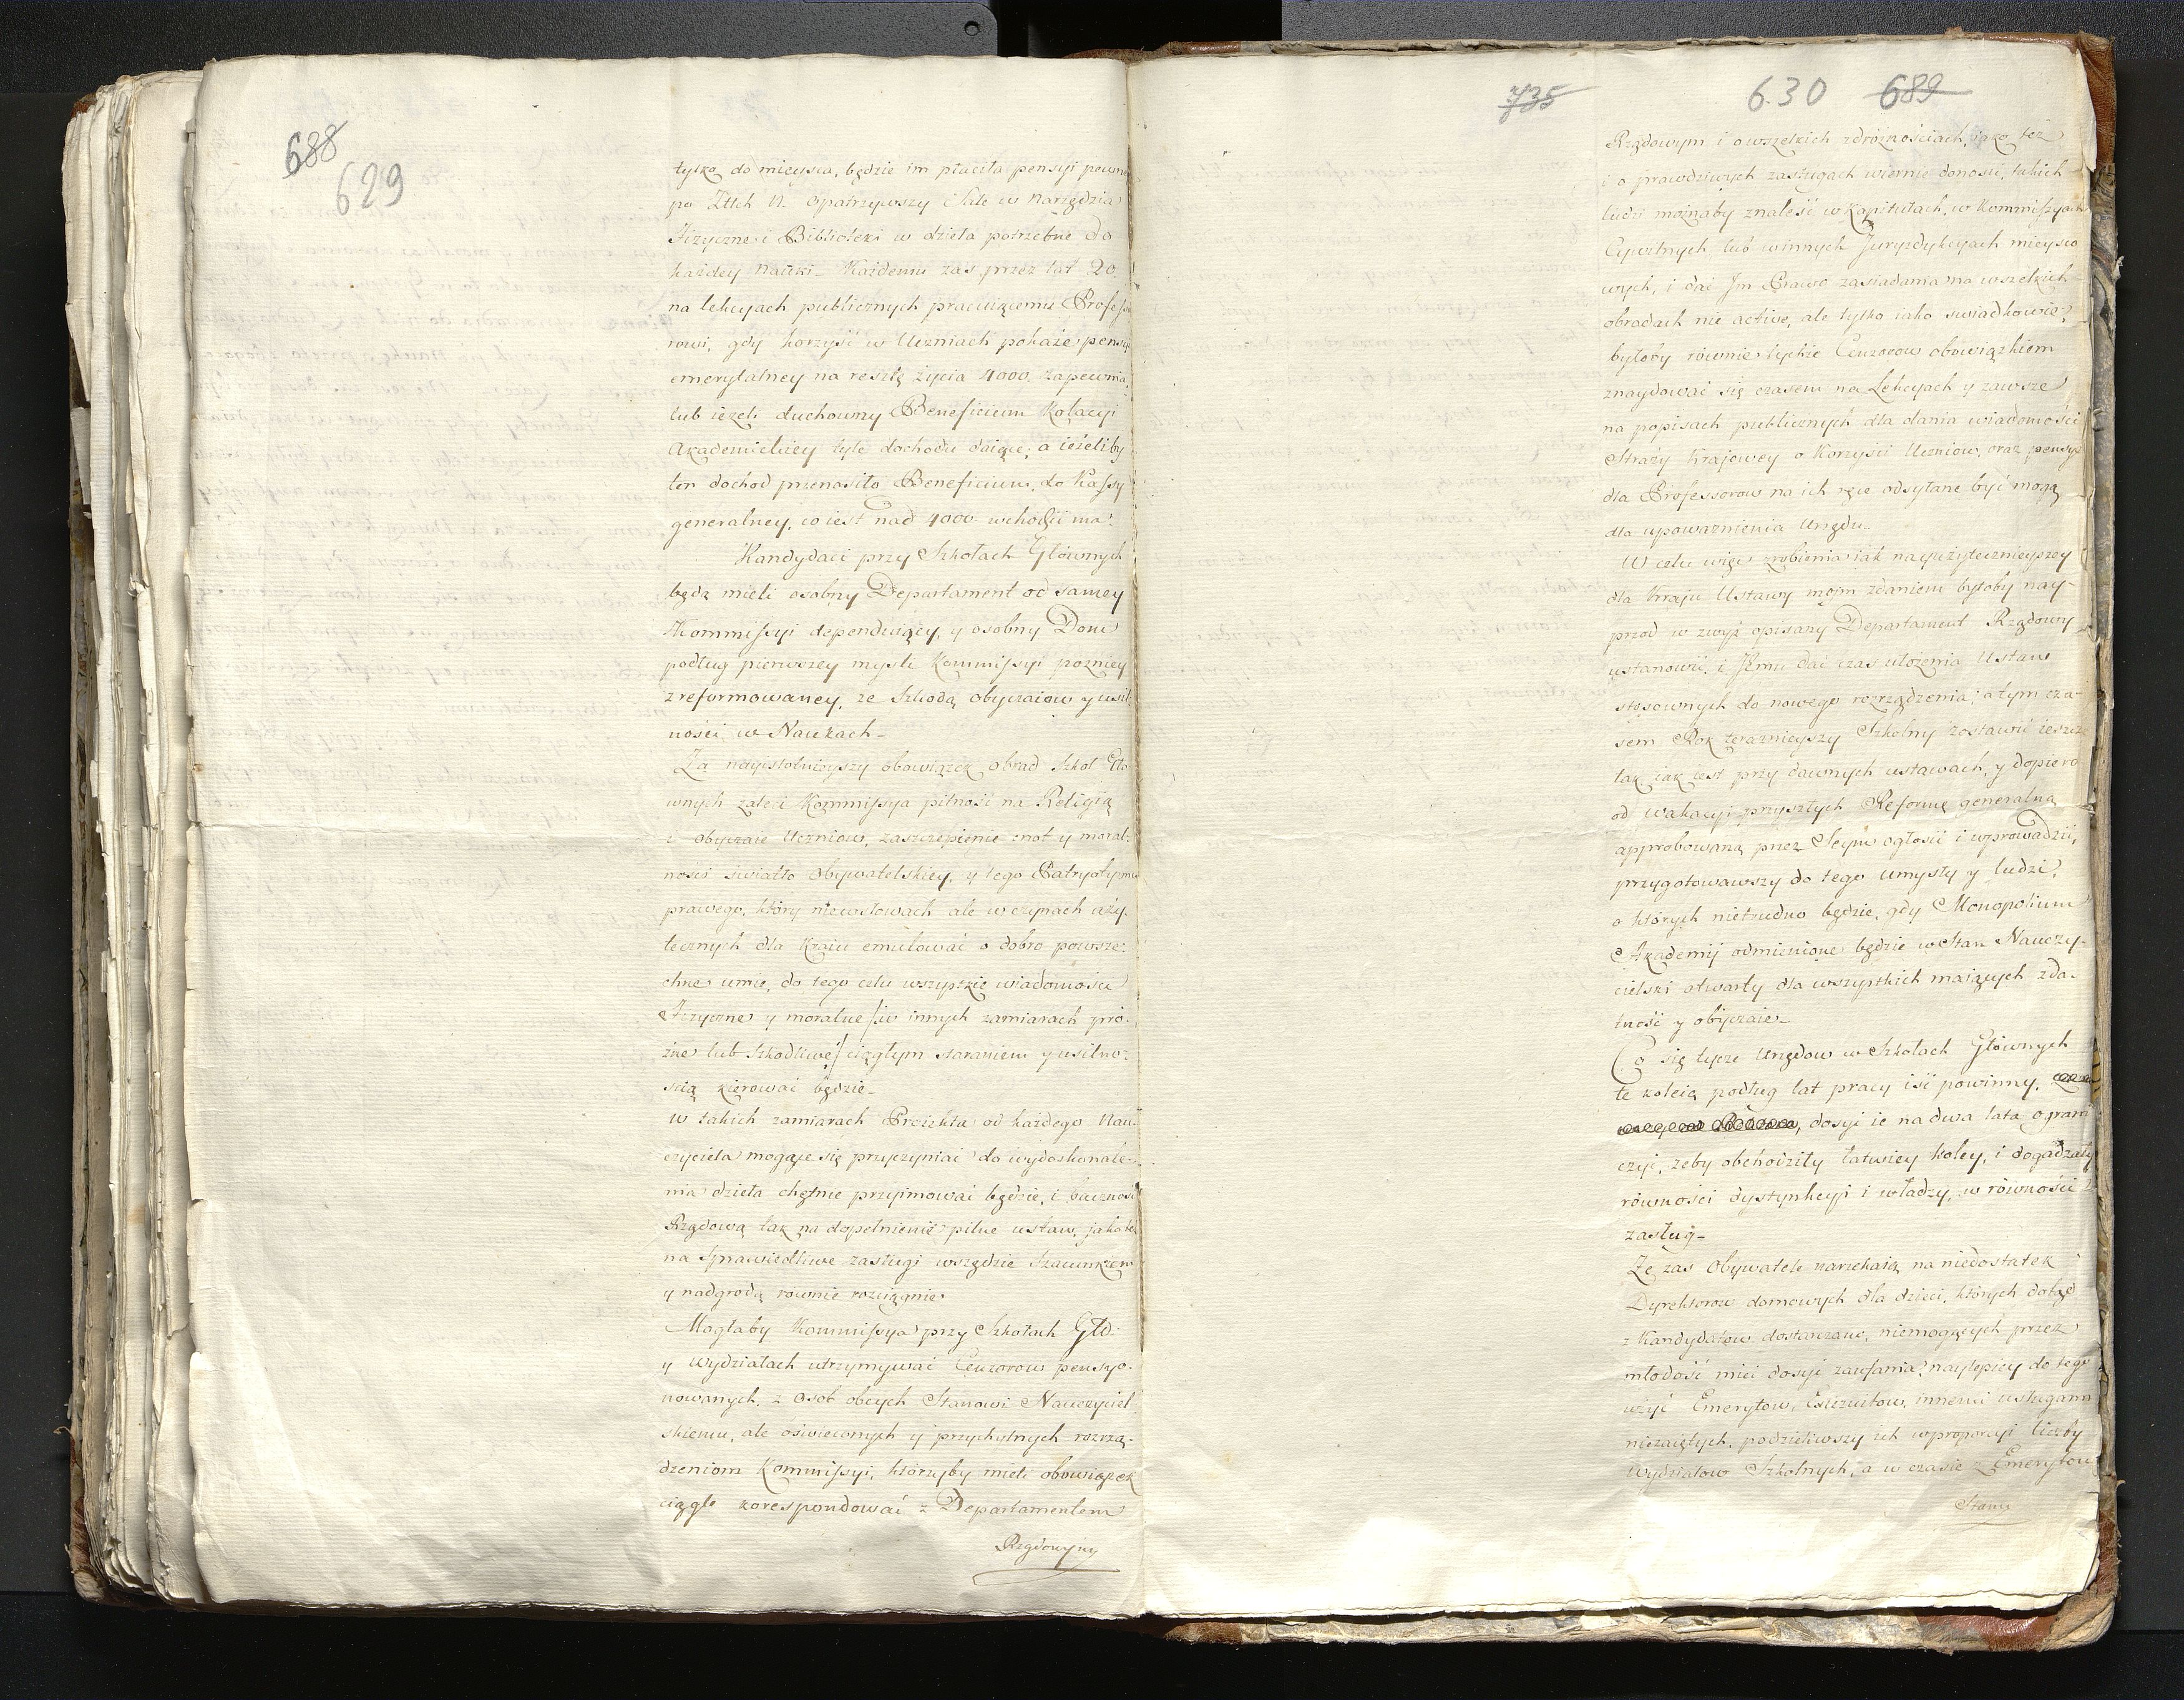 688
629
tylko do mieysca, będzie im płaciła pensyi pewne
po Złłch N. opatrzywszy Sale w narzędzia
Fizyczne i Biblioteki w dzieła potrzebne do
każdey nauki. Każdemu zas przez lat 20
na lekcyach publicznych pracuiącemu Profeſso
rowi, gdy korzyść w Uczniach pokaże, pensyi
emerytalney na resztę życia 4000 zapewnia,
lub ieżeli duchowny Beneficium Kolacyi
Akademickiey tyle dochodu daiące; a ieżeliby
ten dochod przenosiło Beneficium, do Kaſsy
generalney, co iest nad 4000 wchodzić ma.
Kandydaci przy Szkołach Głównych
będą mieli osobny Departament od samey
Kommiſsyi dependuiący, y osobny Dom
podług pierwszey mysli Kommiſsyi pozniey
zreformowaney, ze szkodą obyczaiow y usil:
ności w Naukach_
Za nayistotnieyszy obowiązek obrad Szkoł Gło
wnych zaleci Kommiſsya pilność na Religią
i obyczaie Uczniow, zaszczepienie cnot y moral:
ności swiatło Obywatelskiey, y tego Patryotyzmu
prawego, który niewsłowach ale w czynach uży:
tecznych dla Kraiu emulować o dobro powsze:
chne umie, do tego celu wszystkie wiadomości
Fizyczne y moralne /:w innych zamiarach pró:
żne lub szkodliwe:/ ciągłym staraniem y usilno:
scią kierować będzie_
w takich zamiarach Proiekta od każdego Nau:
czyciela mogące się przyczyniać do wydoskonale:
nia dzieła chętnie przyimować będzie, i baczność
Rządową tak na dopełnienie pilne ustaw, jako też
na sprawiedliwe zasługi wszędzie szacunkiem
y nadgrodą równie rozciągnie.
Mogłaby Kommiſsya przy Szkołach Głó:
y wydziałach utrzymywać Cenzorow pensyo:
nowanych, z osob obcych Stanowi Nauczyciel
skiemu, ale oświeconych y przychylnych rozrzą:
dzeniom Kommiſsyi, którzyby mieli obowiązek
ciągle korespondować z Departamentem
Rządowym
735
630 689
Rządowym i o wszelkich zdróżnościach, iako też
i o prawdziwych zasługach wiernie donosić, takich
ludzi możnaby znaleść w Kapitułach, w Kommiſsyach
Cywilnych lub w innych Juryzdykcyach mieysco
wych, i dać Jm Prawo zasiadania na wszelkich
obradach nie active, ale tylko iako swiadkowie,
byłoby równie tychże Cenzorow obowiązkiem
znaydować się czasem na Lekcyach y zawsze
na popisach publicznych dla dania wiadomości
Straży Krajowey o korzyści Uczniow, oraz pensye
dla Professorow na ich ręce odsyłane być mogą
dla upoważnienia Urzędu_
W celu więc zrobienia iak nayużytecznieyszey
dla Kraju Ustawy moim zdaniem byłoby nay-
przod w zwyż opisany Departament Rządowy
ustanowić, i Jemu dać czas ułożenia Ustaw
stosownych do nowego rozrządzenia; a tym cza-
sem Rok teraznieyszy Szkolny zostawić ieszcze
tak iak iest przy dawnych ustawach, y dopiero
od wakacyi przyszłych Reformę generalną
approbowaną przez Seym ogłosić i wprowadzić,
przygotowawszy do tego umysły y ludzi,
o których nietrudno będzie, gdy Monopolium
Akademij odmienione będzie w Stan Nauczy-
cielski otwarty dla wszystkich maiących zda-
tność y obyczaie_
Co się tycze Urzędow w Szkołach Głównych
te koleią podług lat pracy iść powinny,
dosyć ie na dwa lata ograni
czyć, żeby obchodziły łatwiey koley, i dogadzały
równości dystynkcyi i władzy, w równości
zasług_
Że zas Obywatele narzekaią na niedostatek
Dyrektorow domowych dla dzieci, których dotąd
z Kandydatow dostarczano, niemogących przez
młodość mieć dosyć zaufania; naylepiey do tego
użyć Emerytow, Exiezuitow, innemi usługami
niezaiętych, podzieliwszy ich w proporcyi liczby
wydziałow Szkolnych, a w czasie z Emerytow
Stanu